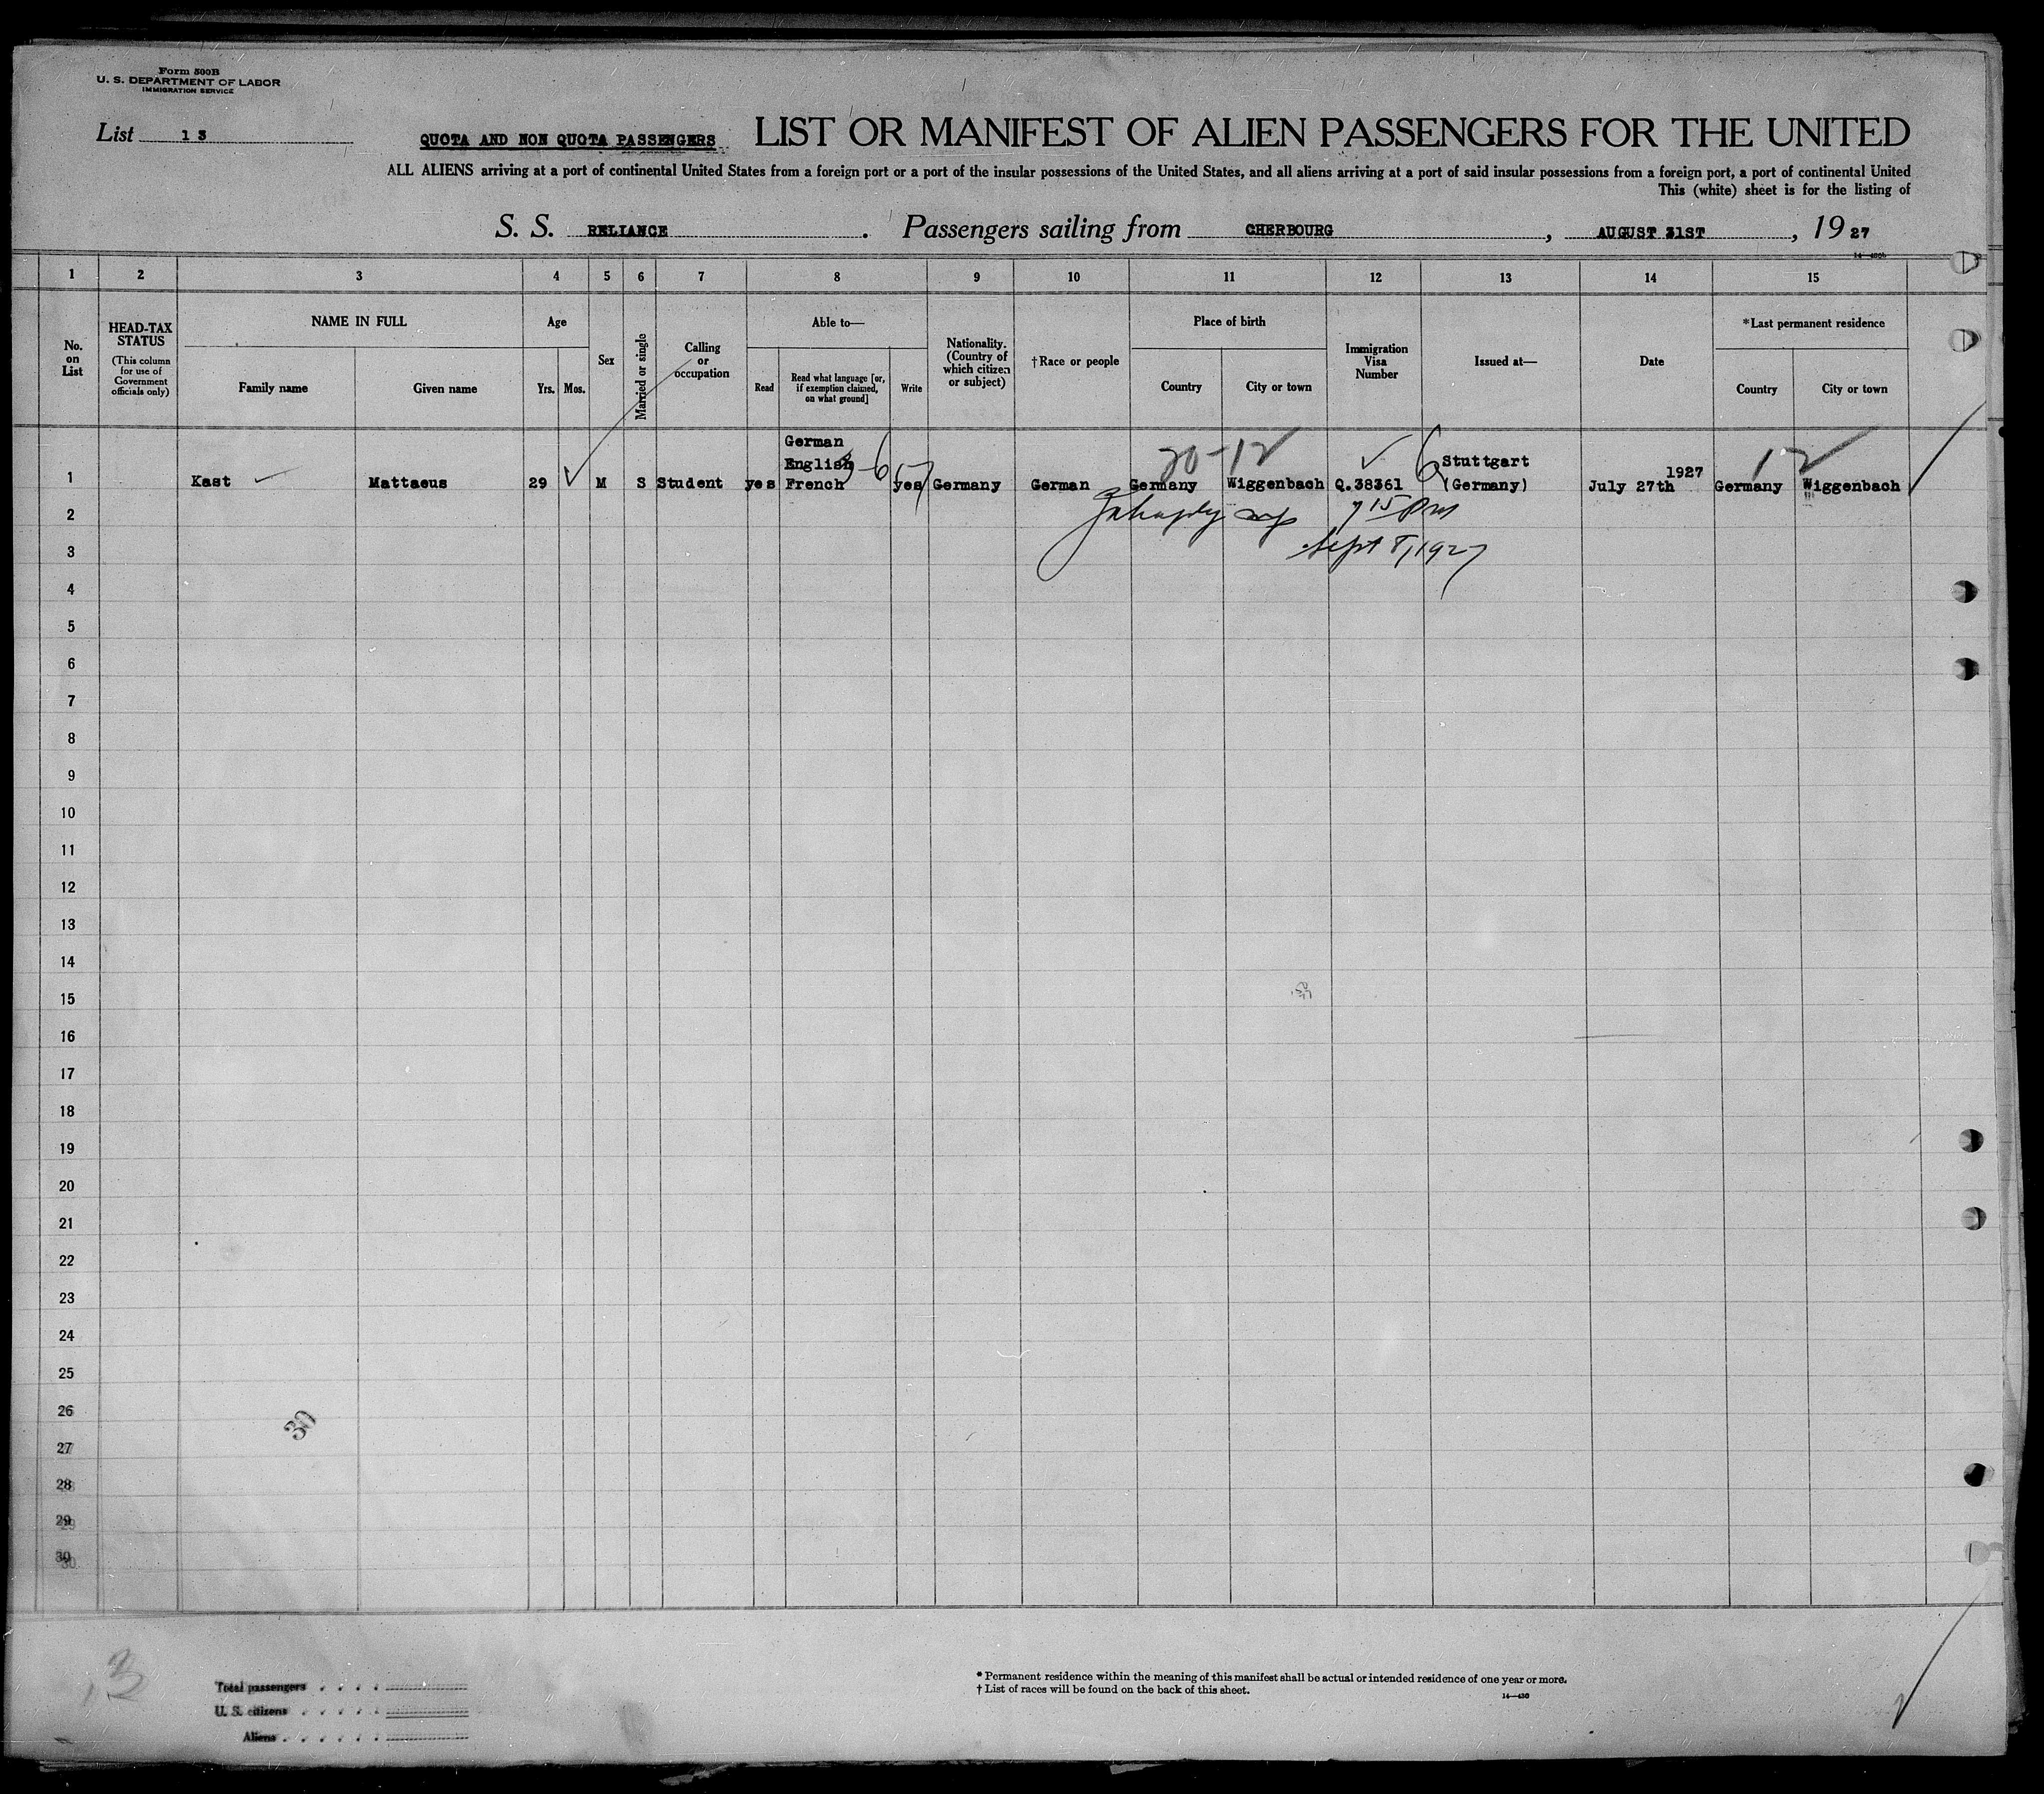 Form 500B
U. S. DEPARTMENT OF LABOR
IMMIGRATION SERVICE
List 13
QUOTA AND NON QUOTA PASSENGERS
LIST OR MANIFEST OF ALIEN PASSENGERS FOR THE UNITED
ALL ALIENS arriving at a port of continental United States from a foreign port or a port of the insular possessions of the United States, and all aliens arriving at a port of said insular possessions from a foreign port, a port of continental United
This (white) sheet is for the listing of
S. S. RELIANCE. Passengers sailing from CHERBOURG, AUGUST 31ST, 1927
1 2 3 4 5 6 7 8 9 10 11 12 13 14 15
No. on List
HEAD-TAX STATUS
(This column for use of Government officials only)
NAME IN FULL
Family name
Given name
Age
Yrs.
Mos.
Sex
Married or single
Calling or occupation
Able to—
Read
Read what language [or, if exemption claimed, on what ground]
Write
Nationality. (Country of which citizen or subject)
†Race or people
Place of birth
Country
City or town
Immigration Visa Number
Issued at—
Date
*Last permanent residence
Country
City or town
1 Kast Mattaeus 29 M S Student yes German English French yes Germany German Germany Wiggenbach Q.38361 Stuttgart (Germany) July 27th 1927 Germany Wiggenbach
20-12
12
7 15 Pm
2
Sept 8, 1927
3
4
5
6
7
8
9
10
11
12
13
14
15
16
17
18
19
20
21
22
23
24
25
26
30
27
28
29
30
13
Total passengers
U. S. citizens
Aliens
* Permanent residence within the meaning of this manifest shall be actual or intended residence of one year or more.
† List of races will be found on the back of this sheet.
14—430